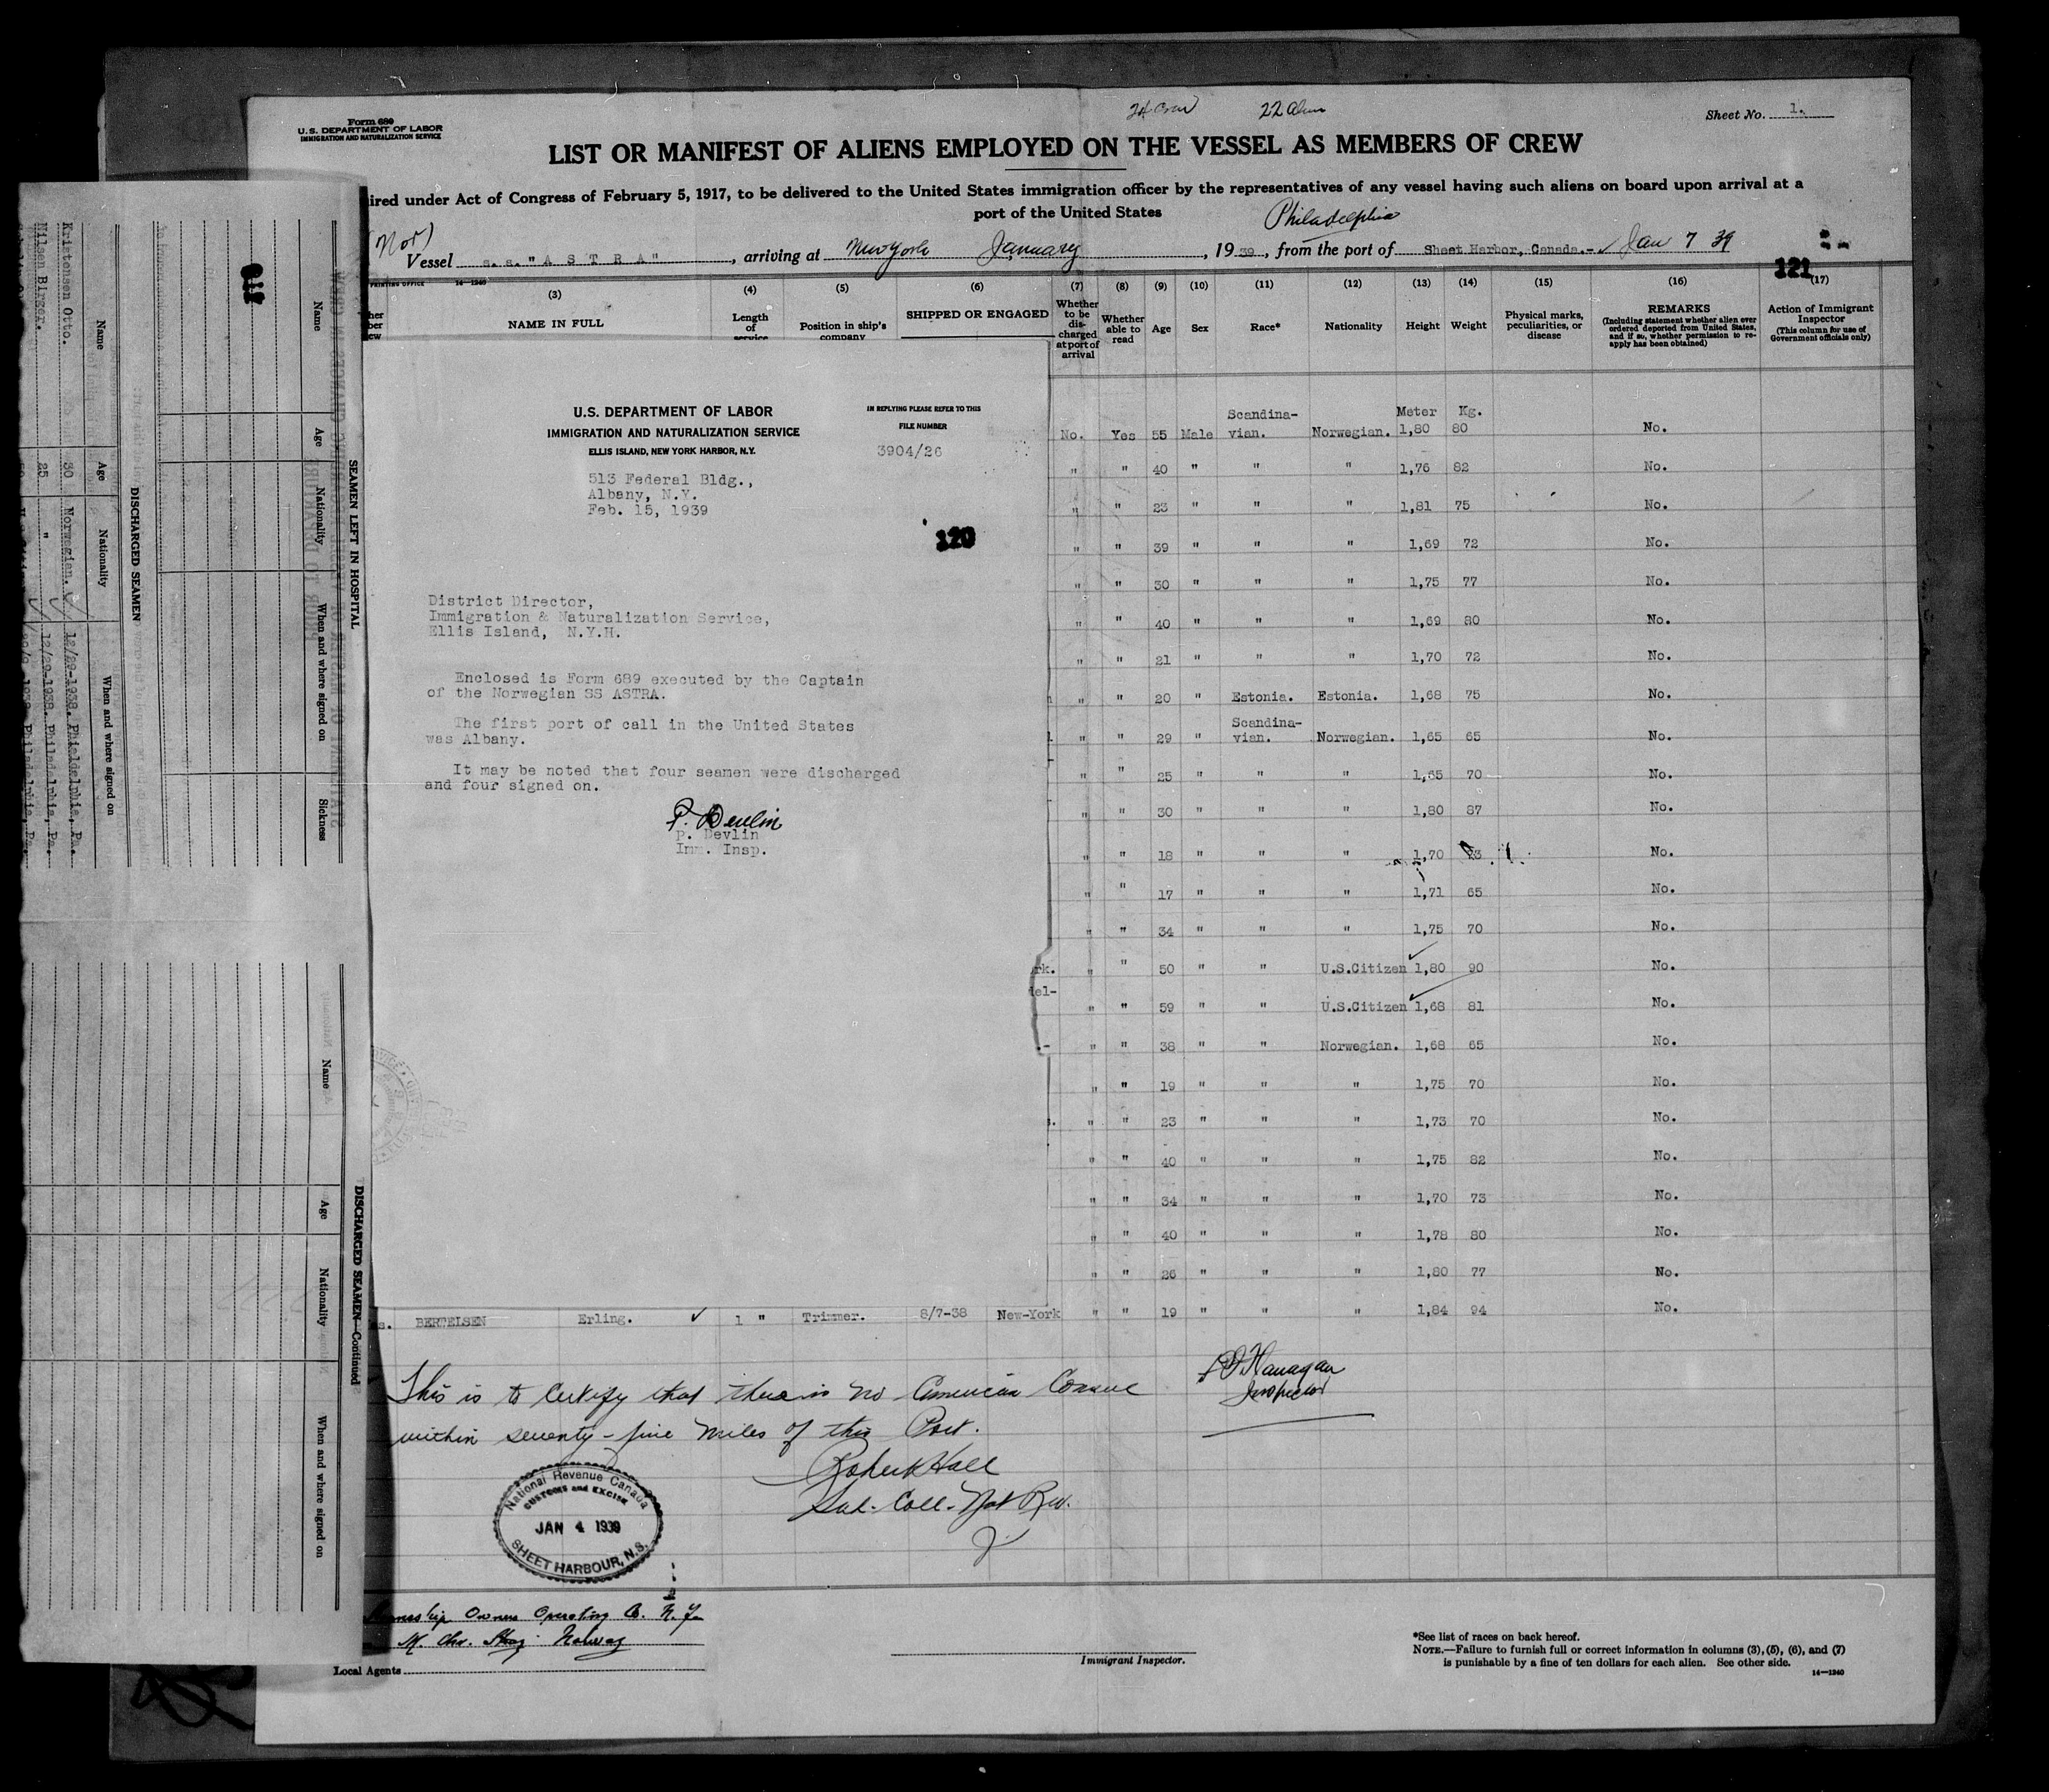 24 Crew 22 Alien
Form 689
U.S. DEPARTMENT OF LABOR
IMMIGRATION AND NATURALIZATION SERVICE
Sheet No. 1.
LIST OR MANIFEST OF ALIENS EMPLOYED ON THE VESSEL AS MEMBERS OF CREW
ired under Act of Congress of February 5, 1917, to be delivered to the United States immigration officer by the representatives of any vessel having such aliens on board upon arrival at a
port of the United States
Philadelphia
(Nor)
Vessel s.s. "ASTRA", arriving at New York January, 1939, from the port of Sheet Harbor, Canada.- Jan 7 39
121
PRINTING OFFICE 14—1240
(3) (4) (5) (6) (7) (8) (9) (10) (11) (12) (13) (14) (15) (16) (17)
NAME IN FULL
Length of service
Position in ship's company
SHIPPED OR ENGAGED
Whether to be discharged at port of arrival
Whether able to read
Age
Sex
Race*
Nationality
Height
Weight
Physical marks, peculiarities, or disease
REMARKS
(Including statement whether alien ever ordered deported from United States, and if so, whether permission to reapply has been obtained)
Action of Immigrant Inspector
(This column for use of Government officials only)
U.S. DEPARTMENT OF LABOR
IMMIGRATION AND NATURALIZATION SERVICE
ELLIS ISLAND, NEW YORK HARBOR, N.Y.
IN REPLYING PLEASE REFER TO THIS
FILE NUMBER
3904/26
513 Federal Bldg.,
Albany, N.Y.
Feb. 15, 1939
120
District Director,
Immigration & Naturalization Service,
Ellis Island, N.Y.H.
Enclosed is Form 689 executed by the Captain
of the Norwegian SS ASTRA.
The first port of call in the United States
was Albany.
It may be noted that four seamen were discharged
and four signed on.
P. Devlin
P. Devlin
Imm. Insp.
Scandina- Meter Kg.
No. Yes 55 Male vian. Norwegian. 1,80 80 No.
" " 40 " " " 1,76 82 No.
" " 23 " " " 1,81 75 No.
" " 39 " " " 1,69 72 No.
" " 30 " " " 1,75 77 No.
" " 40 " " " 1,69 80 No.
" " 21 " " " 1,70 72 No.
" " 20 " Estonia. Estonia. 1,68 75 No.
Scandina-
" " 29 " vian. Norwegian. 1,65 65 No.
" " 25 " " " 1,65 70 No.
" " 30 " " " 1,80 87 No.
" " 18 " " " 1,70 No.
" " 17 " " " 1,71 65 No.
" " 34 " " " 1,75 70 No.
rk. " " 50 " " U.S.Citizen 1,80 90 No.
del-
" " 59 " " U.S.Citizen 1,68 81 No.
" " 38 " " Norwegian. 1,68 65 No.
" " 19 " " " 1,75 70 No.
" " 23 " " " 1,73 70 No.
" " 40 " " " 1,75 82 No.
" " 34 " " " 1,70 73 No.
" " 40 " " " 1,78 80 No.
" " 26 " " " 1,80 77 No.
es. BERTELSEN Erling. ✓ 1 " Trimmer. 8/7-38 New-York " " 19 " " " 1,84 94 No.
This is to Certify that there is no American Consul
within seventy-five miles of this Port.
Robert Hall
Sub-Coll-Nat Rev.
Flanagan
Inspector
National Revenue Canada
CUSTOMS and EXCISE
JAN 4 1939
SHEET HARBOUR, N.S.
Owners Operating Co. N.Y.
Norway
Local Agents
Immigrant Inspector.
*See list of races on back hereof.
NOTE.—Failure to furnish full or correct information in columns (3), (5), (6), and (7)
is punishable by a fine of ten dollars for each alien. See other side.
14—1240
SEAMEN LEFT IN HOSPITAL
Name Age Nationality When and where signed on Sickness
DISCHARGED SEAMEN
Name Age Nationality When and where signed on
Kristensen Otto. 30 Norwegian. 12/29-1938. Philadelphia, Pa.
Nilsen Birger. 25 " 12/29-1938. Philadelphia, Pa.
DISCHARGED SEAMEN—Continued
Name Age Nationality When and where signed on